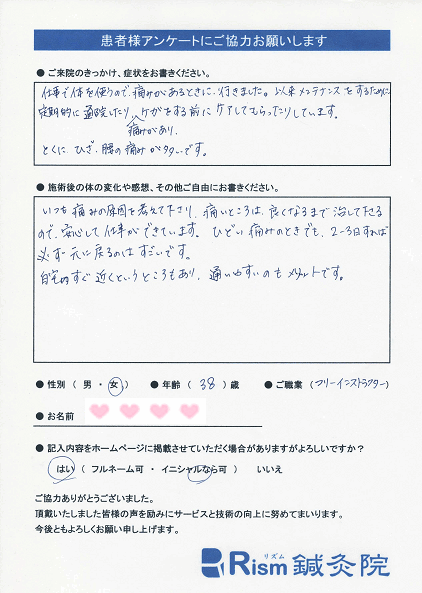 患者様アンケートにご協力お願いします
● ご来院のきっかけ、症状をお書きください。
仕事で体を使うので、痛みがあるときに、行きました。以来メンテナンスをするために
定期的に通院したり、ケガをする前にケアしてもらったりしています。
痛みがあり、
とくに、ひざ、腰の痛みが多いです。
● 施術後の体の変化や感想、その他ご自由にお書きください。
いつも痛みの原因を考えて下さり、痛いところは、良くなるまで治して下さる
ので、安心して仕事ができています。ひどい痛みのときでも、2~3日すれば
必ず元に戻るのはすごいです。
自宅のすぐ近くというところもあり、通いやすいのもメリットです。
● 性別 ( 男 ・ 女 ) ● 年齢 ( 38 ) 歳 ● ご職業 ( フリーインストラクター )
● お名前
● 記入内容をホームページに掲載させていただく場合がありますがよろしいですか？
はい ( フルネーム可 ・ イニシャルなら可 ) いいえ
ご協力ありがとうございました。
頂戴いたしました皆様の声を励みにサービスと技術の向上に努めてまいります。
今後ともよろしくお願い申し上げます。
リズム
Rism鍼灸院